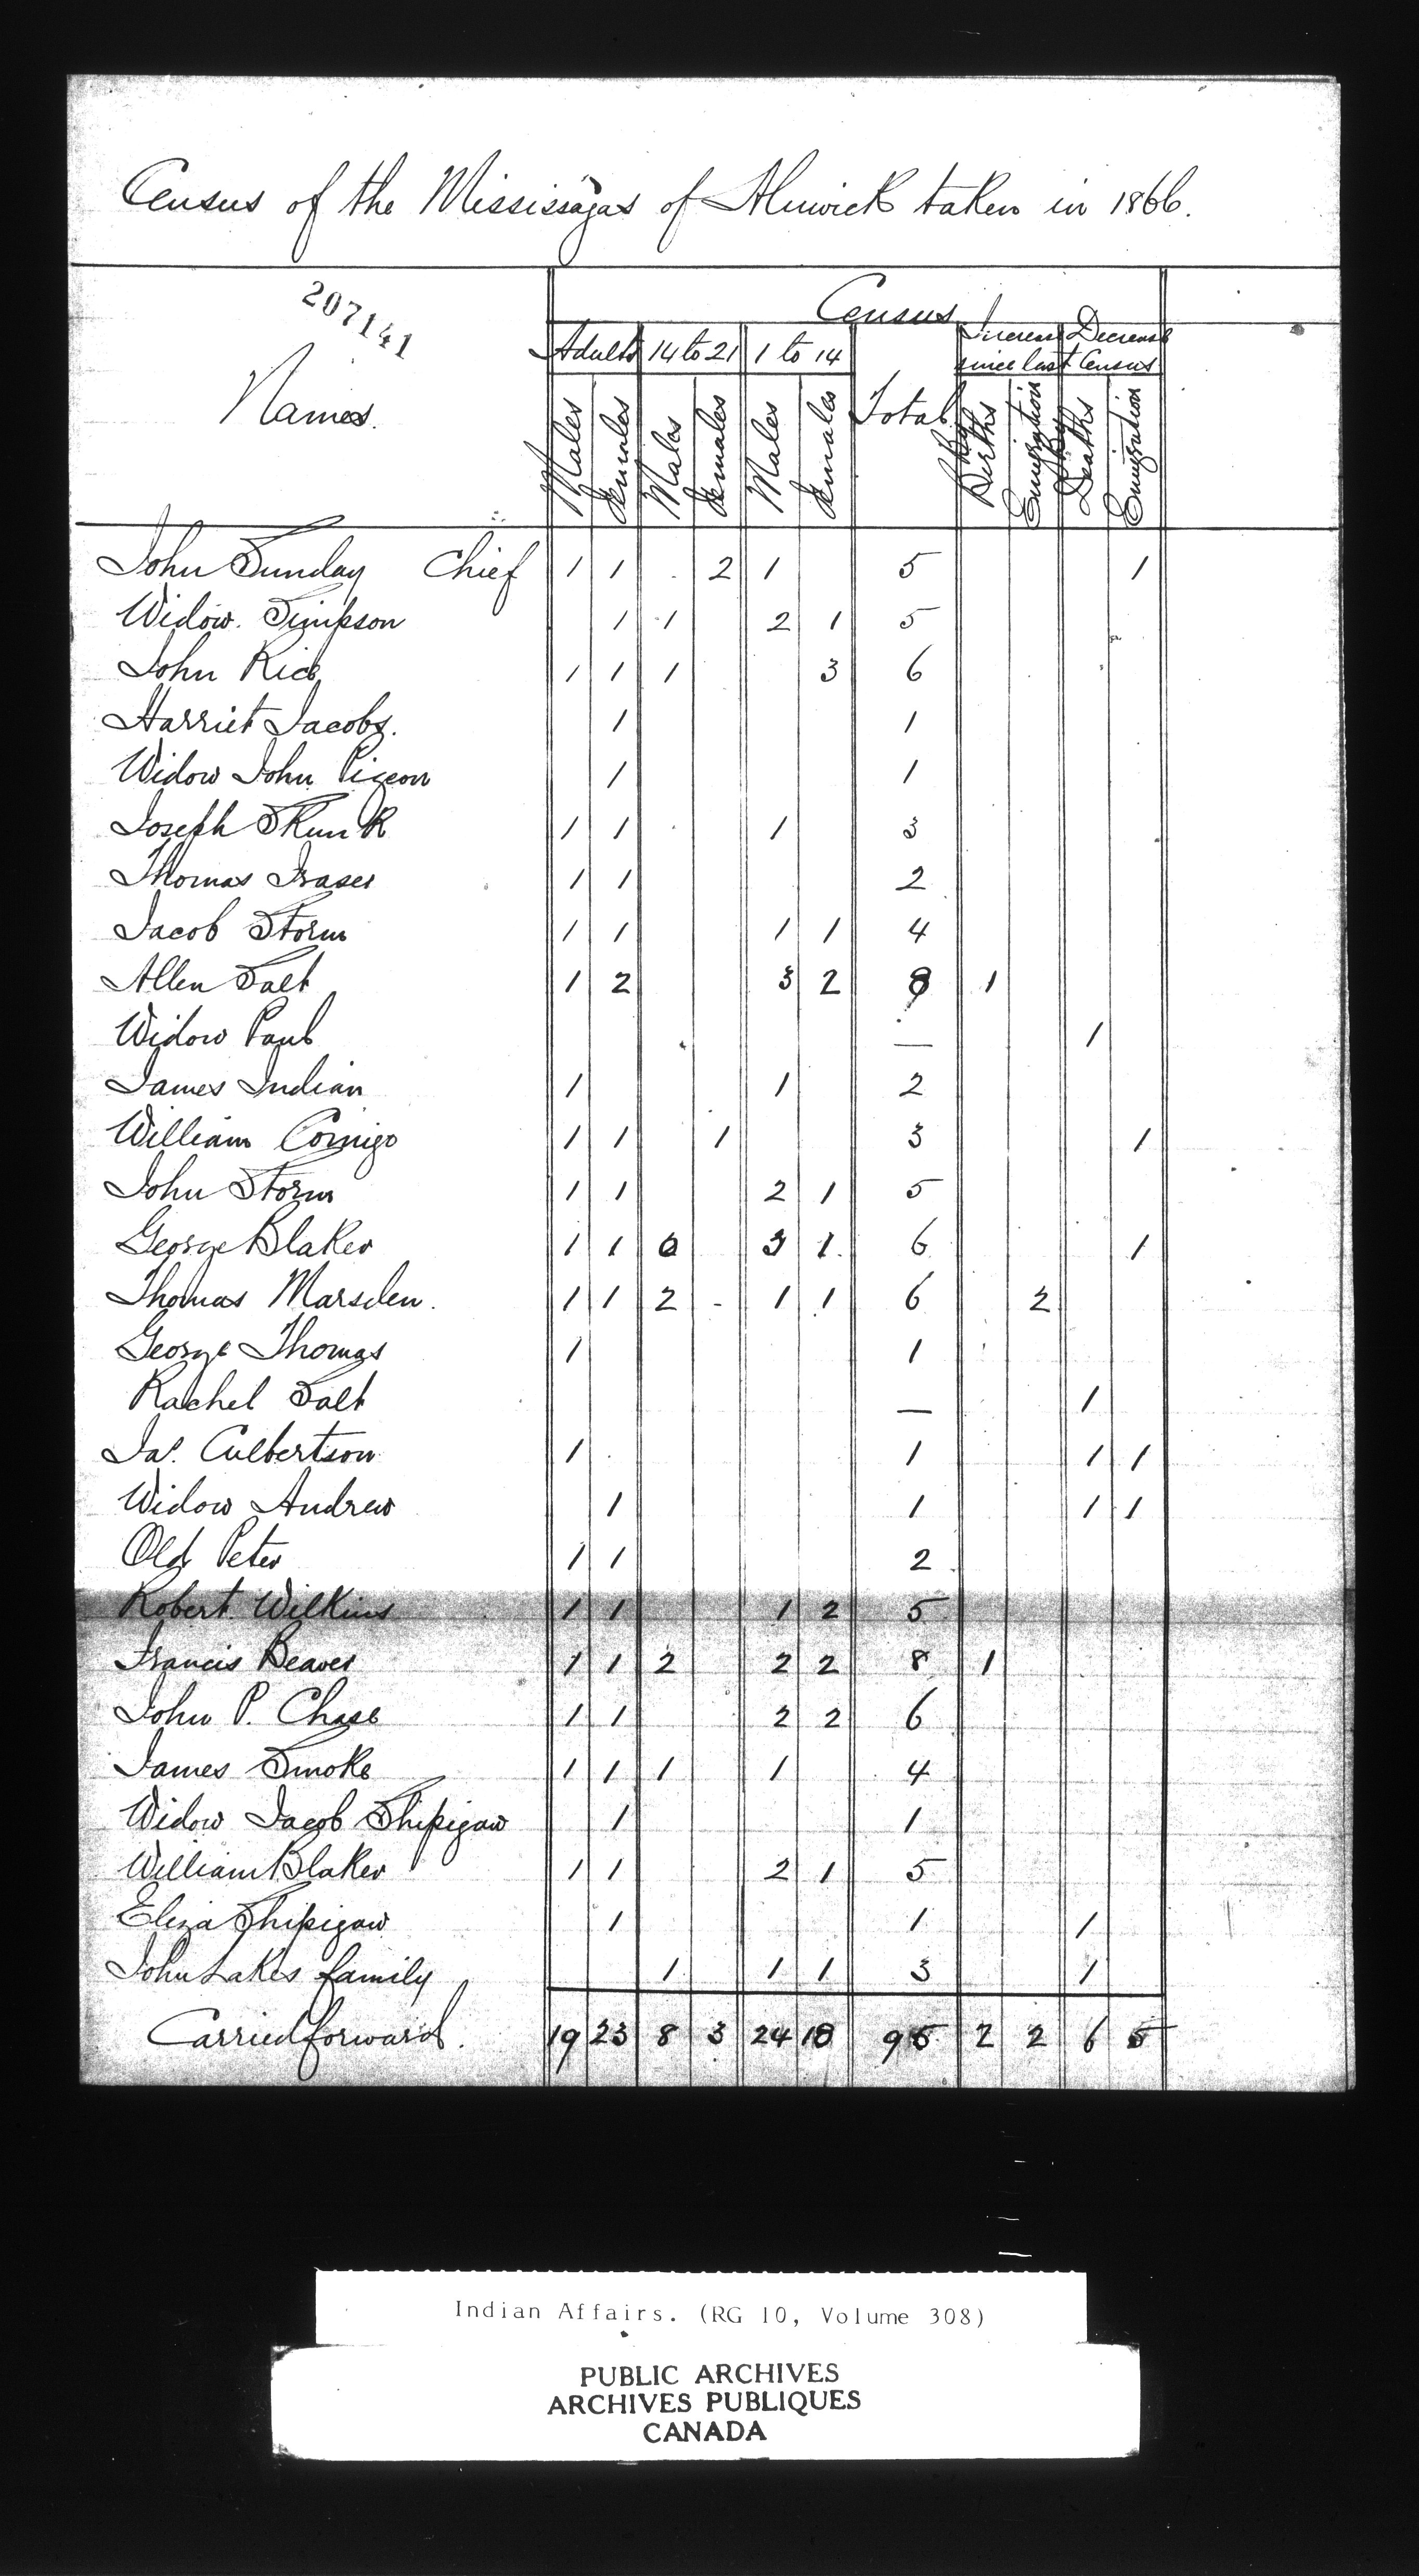 Census of the Mississagas of Alnwick taken in 1866.
207141
Census
Names. Adults 14 to 21 1 to 14 Total Increase Decrease
since last Census
Males Females Males Females Males Females By Births Emigration By Deaths Emigration
John Sunday Chief 1 1 2 1 5 1
Widow Simpson 1 1 2 1 5
John Rice 1 1 1 3 6
Harriet Jacobs. 1 1
Widow John Pigeon 1 1
Joseph Skunk 1 1 1 3
Thomas Fraser 1 1 2
Jacob Storm 1 1 1 1 4
Allen Salt 1 2 3 2 8 1
Widow Paul — 1
James Indian 1 1 2
William Comigo 1 1 1 3 1
John Storm 1 1 2 1 5
George Blaker 1 1 0 3 1 6 1
Thomas Marsden. 1 1 2 - 1 1 6 2
George Thomas 1 1
Rachel Salt — 1
Jas. Culbertson 1 1 1 1
Widow Andrew 1 1 1 1
Old Peter 1 1 2
Robert Wilkins 1 1 1 2 5
Francis Beaver 1 1 2 2 2 8 1
John P. Chase 1 1 2 2 6
James Smoke 1 1 1 1 4
Widow Jacob Shipigaw 1 1
William Blaker 1 1 2 1 5
Eliza Shipigaw 1 1 1
John Lakes family 1 1 1 3 1
Carried forward. 19 23 8 3 24 18 95 2 2 6 5
Indian Affairs. (RG 10, Volume 308)
PUBLIC ARCHIVES
ARCHIVES PUBLIQUES
CANADA